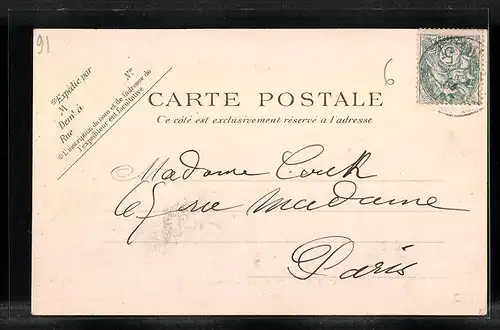 91
6
Expédié par
M
Demt à
Rue
N°
L'inscription du nom et de l'adresse de
l'expéditeur est facultative
CARTE POSTALE
Ce côté est exclusivement réservé à l'adresse
Madame
rue Madame
Paris